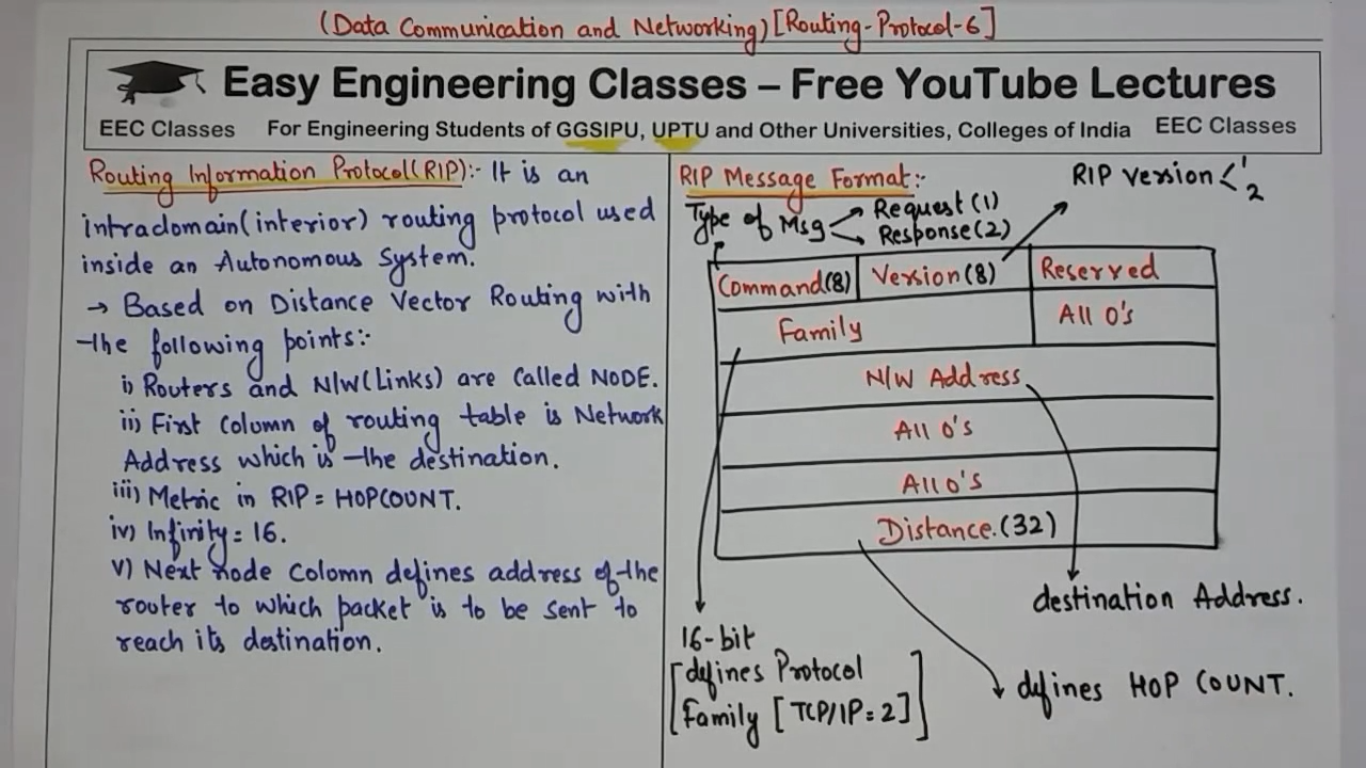 (Data Communication and Networking) [Routing-Protocol-6]
Easy Engineering Classes – Free YouTube Lectures
EEC Classes For Engineering Students of GGSIPU, UPTU and Other Universities, Colleges of India EEC Classes
Routing Information Protocol(RIP):- It is an
intradomain(interior) routing protocol used
inside an Autonomous System.
→ Based on Distance Vector Routing with
the following points:-
i) Routers and N/W(Links) are called NODE.
ii) First Column of routing table is Network
Address which is the destination.
iii) Metric in RIP = HOPCOUNT.
iv) Infinity = 16.
v) Next node Colomn defines address of the
router to which packet is to be sent to
reach its destination.
RIP Message Format:-
RIP version < 1
2
Type of Msg → Request (1)
→ Response (2)
Command(8) Version(8) Reserved
Family All 0's
N/W Address
All 0's
All 0's
Distance.(32)
destination Address.
16-bit
[defines Protocol
Family [TCP/IP=2]]
defines HOP COUNT.